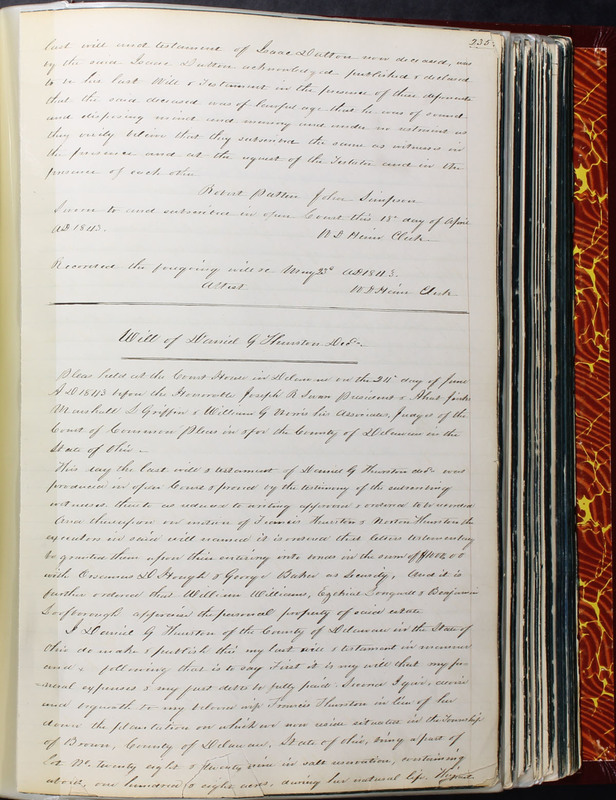 235
last will and testament of Isaac Dutton now deceased, was
by the said Isaac Dutton acknowledged published & declared
to be his last Will & Testament in the presence of these deponents
that the said deceased was of lawful age that he was of sound
and disposing mind and memory and under no restraint as
they verily believe that they subscribed the same as witnesses in
the presence and at the request of the Testator and in the
presence of each other
Robert Patton John Simpson
Sworn to and subscribed in open Court this 18th day of April
AD 1843.
W D Heim Clerk
Recorded the foregoing will &c May 23d AD 1843.
Attest W D Heim Clerk
Will of Daniel G Thurston Decd.
Pleas held at the Court House in Delaware on the 24th day of June
AD 1843 before the Honorable Joseph R Swan President & Ahab Jinks
Marshall L Griffin & William G Norris his Associates, Judges of the
Court of Common Pleas in & for the County of Delaware in the
State of Ohio
This day the last will & testament of Daniel G Thurston decd was
produced in open Court & proved by the testimony of the subscribing
witnesses thereto as reduced to writing approved & ordered to be recorded
And thereupon on motion of Francis Thurston & Norton Thurston the
executors in said will named it is ordered that letters testamentary
be granted them upon their entering into bonds in the sum of $1600.00
with D Hough & George Baker as Security, And it is
further ordered that William Williams, Ezekiel Longwell & Benjamin
appraise the personal property of said estate
I Daniel G Thurston of the County of Delaware in the State of
Ohio do make & publish this my last will & testament in manner
and following that is to say First it is my will that my fu-
neral expenses & my just debts be fully paid. Second I give, devise
and bequeath to my beloved wife Francis Thurston in lieu of her
dower the plantation on which we now reside situated in the Township
of Brown, County of Delaware, State of Ohio, being a part of
Lot No. twenty eight & twenty nine in salt reservation, containing
about, one hundred & eight acres, during her natural life.